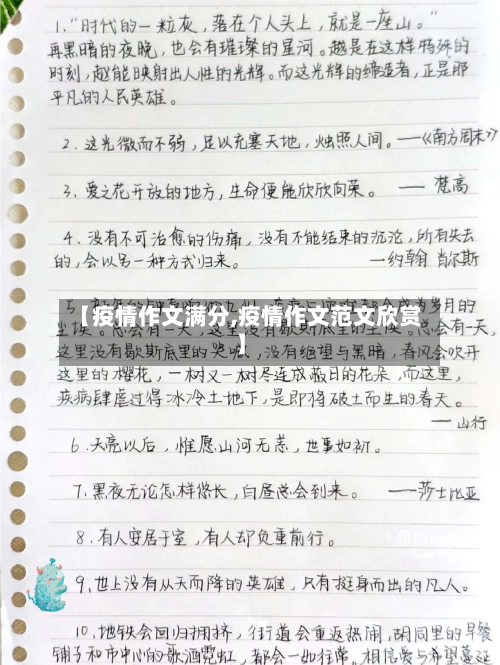 1."时代的一粒灰，落在个人头上，就是一座山。"
再黑暗的夜晚，也会有璀璨的星河。越是在这样特殊的
时刻，越能映射出人性的光辉。而这光辉的缔造者，正是那
平凡的人民英雄。
2. 这光微而不弱，足以充塞天地，烛照人间。——《南方周末》
3. 爱之花开放的地方，生命便能欣欣向荣。 —— 梵高
4. 没有不可治愈的伤痛，没有不能结束的沉沦，所有失去
的，会以另一种方式归来。 —约翰 肖尔斯
【疫情作文满分,疫情作文范文欣赏
】
岁月的
会有一天，
这里没有歇斯底里的哭喊，没有绝望与黑暗，春风会吹开
这里的樱花，一树又一树尽连成蔽日的花朵，而这里，
疾病肆虐过得冰冷土地下，是即将破土而生的春天。
—山行
6.天亮以后，惟愿山河无恙，世事如初。
7.黑夜无论怎样悠长，白昼总会到来。 ——莎士比亚
8.有人安居于室，有人却负重前行。
9.世上没有从天而降的英雄，只有挺身而出的凡人。
10.地铁会回归拥挤，街道会重返热闹，胡同里的早餐
铺子和市中心的歌酒霓虹，都会一如往常。相信爱与希望蔓延